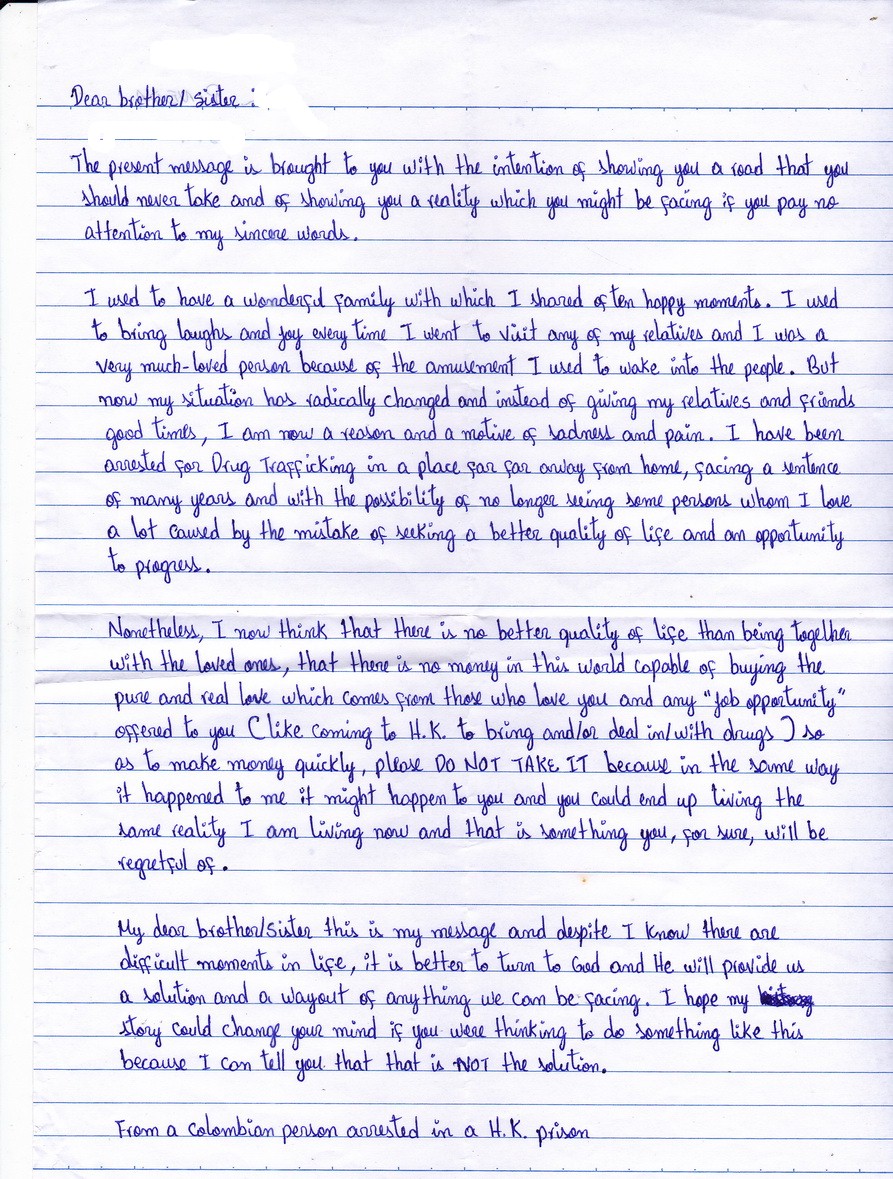 Dear brother/ sister :
The present message is brought to you with the intention of showing you a road that you
should never take and of showing you a reality which you might be facing if you pay no
attention to my sincere words.
I used to have a wonderful family with which I shared often happy moments. I used
to bring laughs and joy every time I went to visit any of my relatives and I was a
very much-loved person because of the amusement I used to wake into the people. But
now my situation has radically changed and instead of giving my relatives and friends
good times, I am now a reason and a motive of sadness and pain. I have been
arrested for Drug Trafficking in a place far far away from home, facing a sentence
of many years and with the possibility of no longer seeing some persons whom I love
a lot caused by the mistake of seeking a better quality of life and an opportunity
to progress.
Nonetheless, I now think that there is no better quality of life than being together
with the loved ones, that there is no money in this world capable of buying the
pure and real love which comes from those who love you and any "job opportunity"
offered to you (like coming to H.K. to bring and/or deal in/with drugs) so
as to make money quickly, please DO NOT TAKE IT because in the same way
it happened to me it might happen to you and you could end up living the
same reality I am living now and that is something you, for sure, will be
regretful of.
My dear brother/sister this is my message and despite I know there are
difficult moments in life, it is better to turn to God and He will provide us
a solution and a wayout of anything we can be facing. I hope my
story could change your mind if you were thinking to do something like this
because I can tell you that that is NOT the solution.
From a Colombian person arrested in a H.K. prison